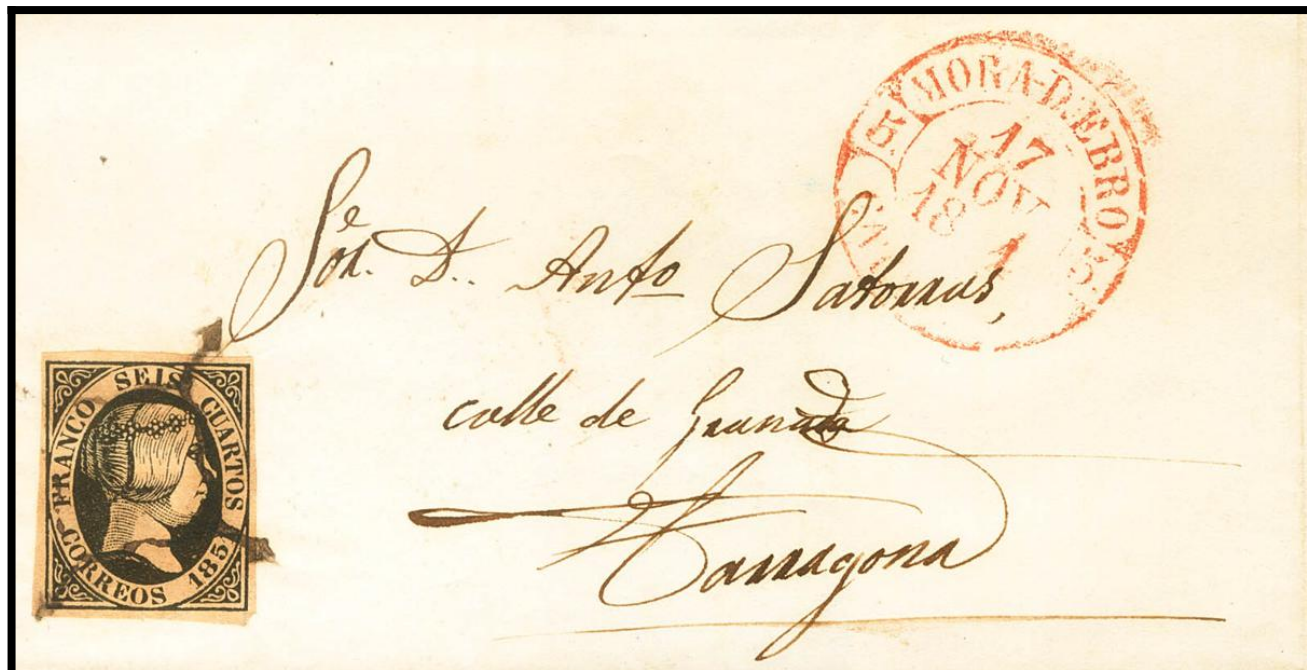 MORA-D'EBRO
17
NOV
18 1
Sõr. D. Antº Satorras,
calle de Granada
Tarragona
FRANCO SEIS CUARTOS
CORREOS 1851